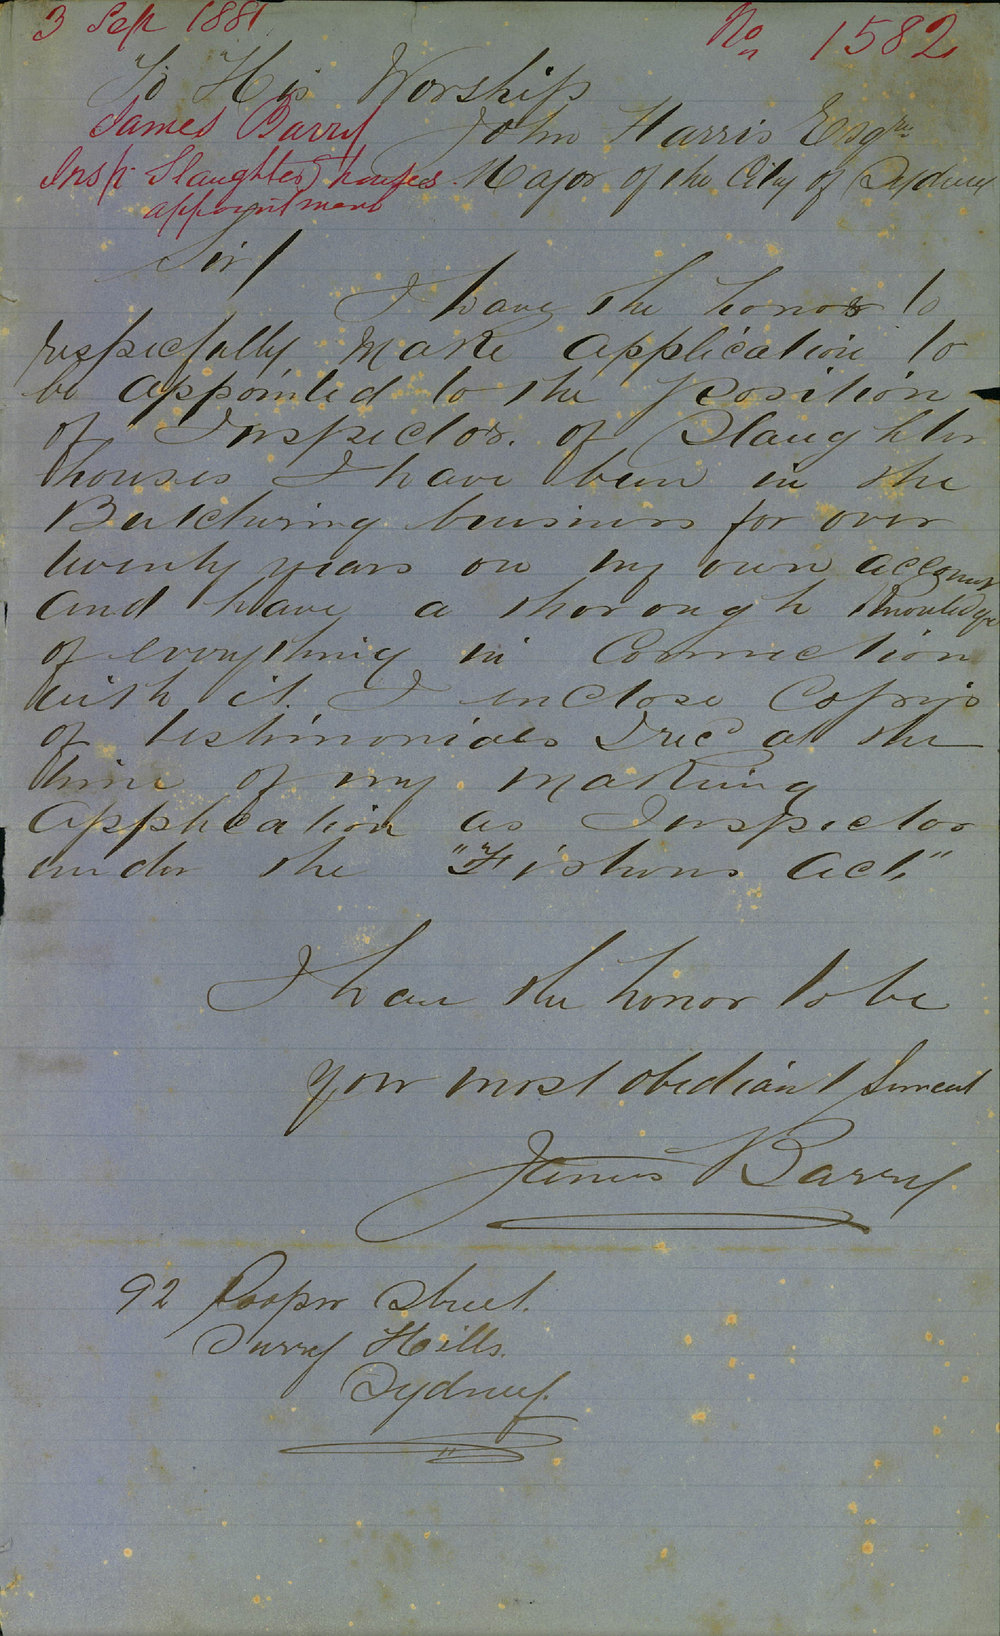 3 Sep 1881
No. 1582
To His Worship
James Barry
John Harris Esqre
Insp. Slaughter houses
appointment
Mayor of the City of Sydney
Sir/
I have the honor to
respecfully make application to
be appointed to the position
of Inspector of Slaughter
houses I have been in the
Butchering business for over
twenty years on my own account
and have a thorough knowledge
of everything in Connection
with it. I inclose Copys
of testimonials I recd at the
time of my making
application as Inspector
under the "Fishers Act,"
I have the honor to be
your most obediant Servent
James Barry
92 Cooper Street.
Surry Hills.
Sydney.